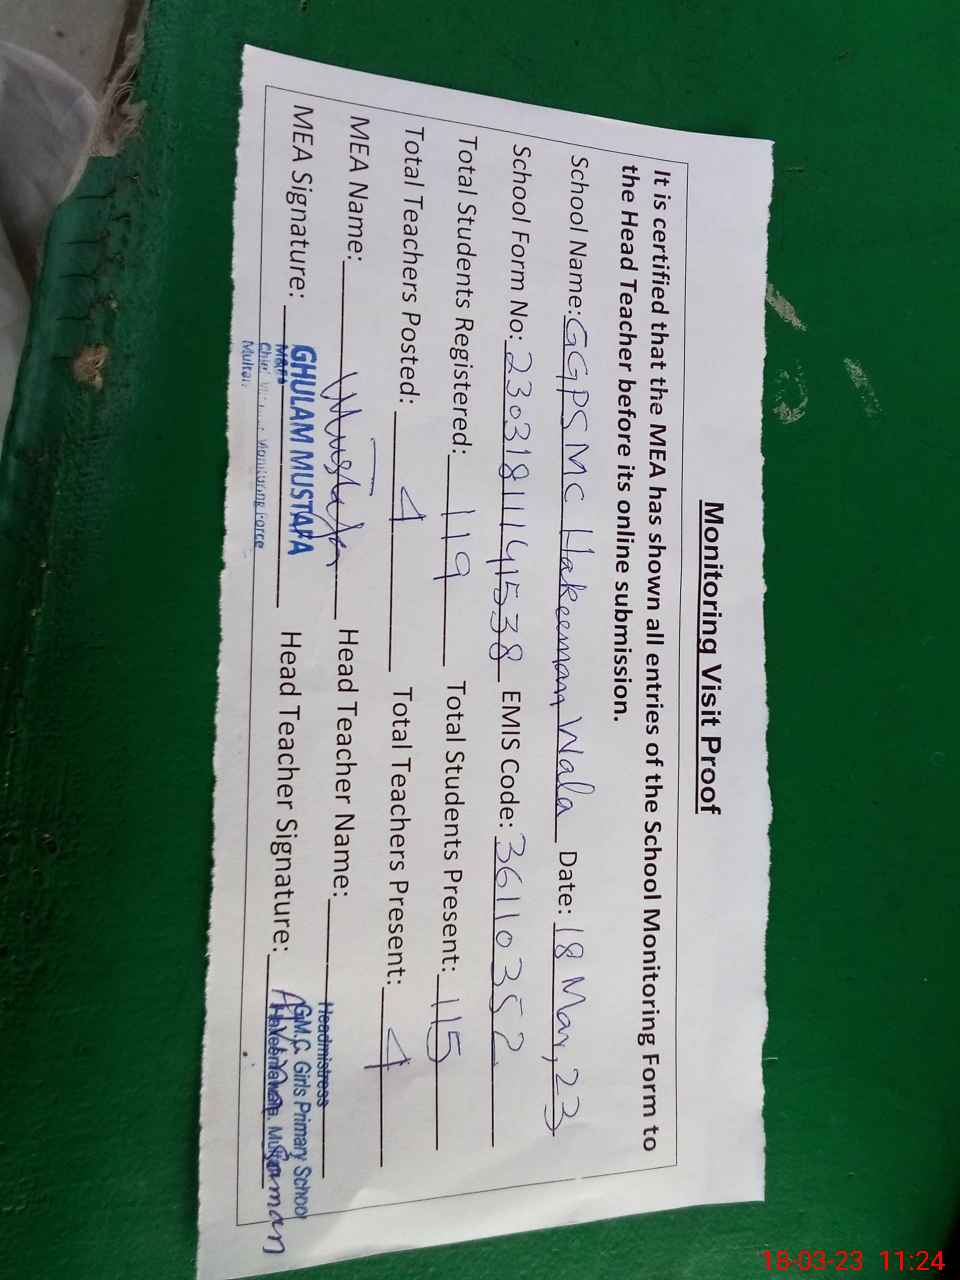 Monitoring Visit Proof
It is certified that the MEA has shown all entries of the School Monitoring Form to
the Head Teacher before its online submission.
School Name: GGPS MC Hakeeman Wala Date: 18 Mar, 23
School Form No: 23031811141538 EMIS Code: 36110352
Total Students Registered: 119 Total Students Present: 115
Total Teachers Posted: 4 Total Teachers Present: 4
MEA Name: Mustafa Head Teacher Name:
MEA Signature: Head Teacher Signature:
GHULAM MUSTAFA
Monitoring Force
Multan
Headmistress
G.M.C. Girls Primary School
18-03-23 11:24